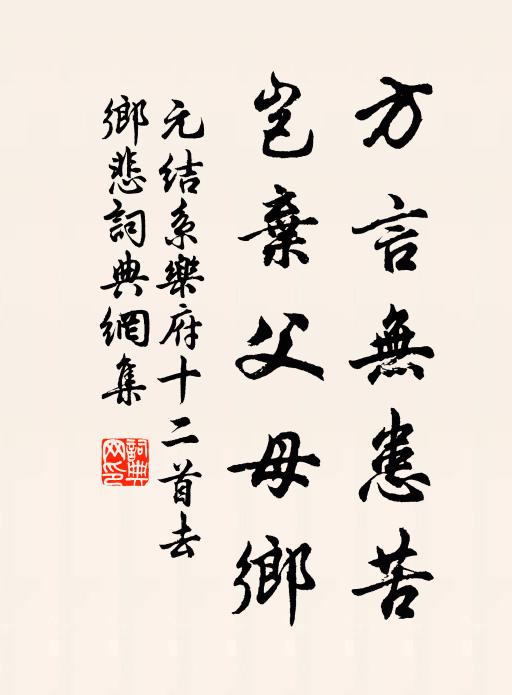 方言無患苦
豈棄父母鄉
元結系樂府十二首去
鄉悲詞典網集
詞典网印